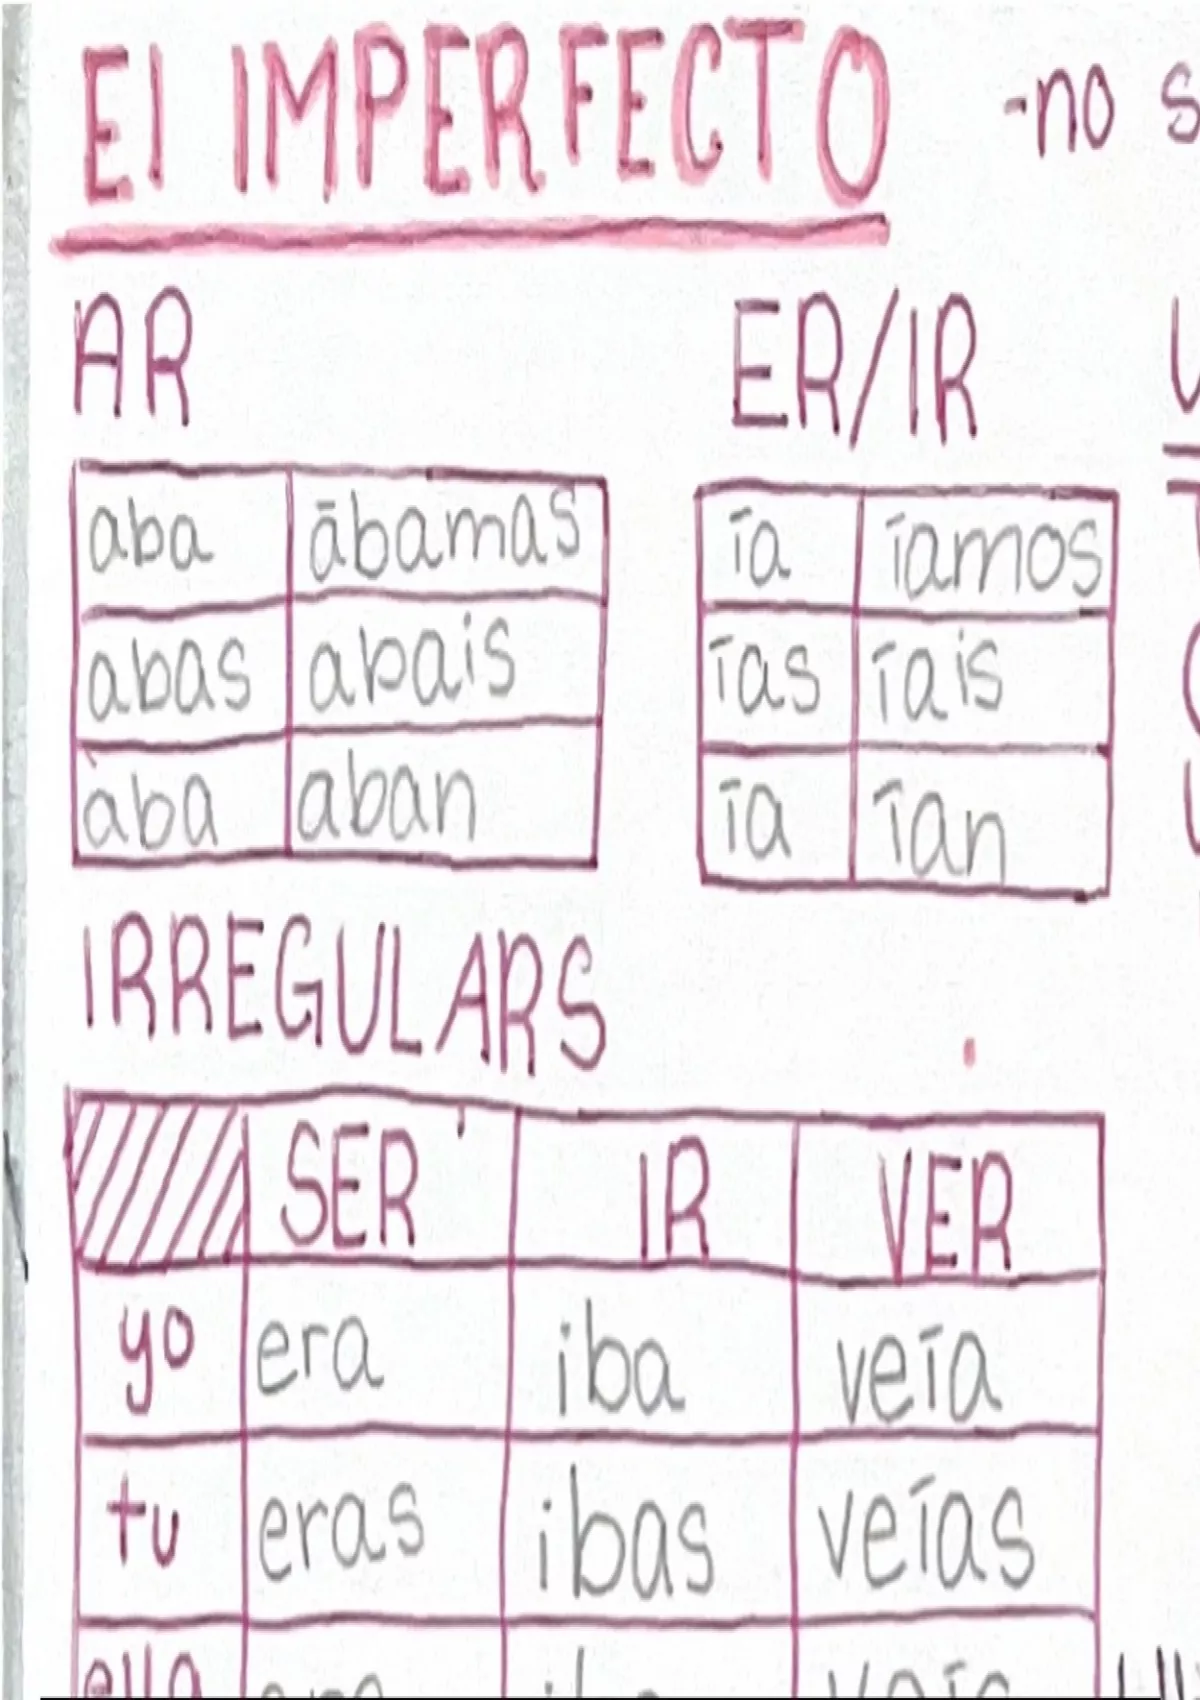 El IMPERFECTO -no s
AR ER/IR
aba ābamas īa īamos
abas abais īas īais
aba aban īa īan
IRREGULARS
SER IR VER
yo era iba veīa
tu eras ibas veīas